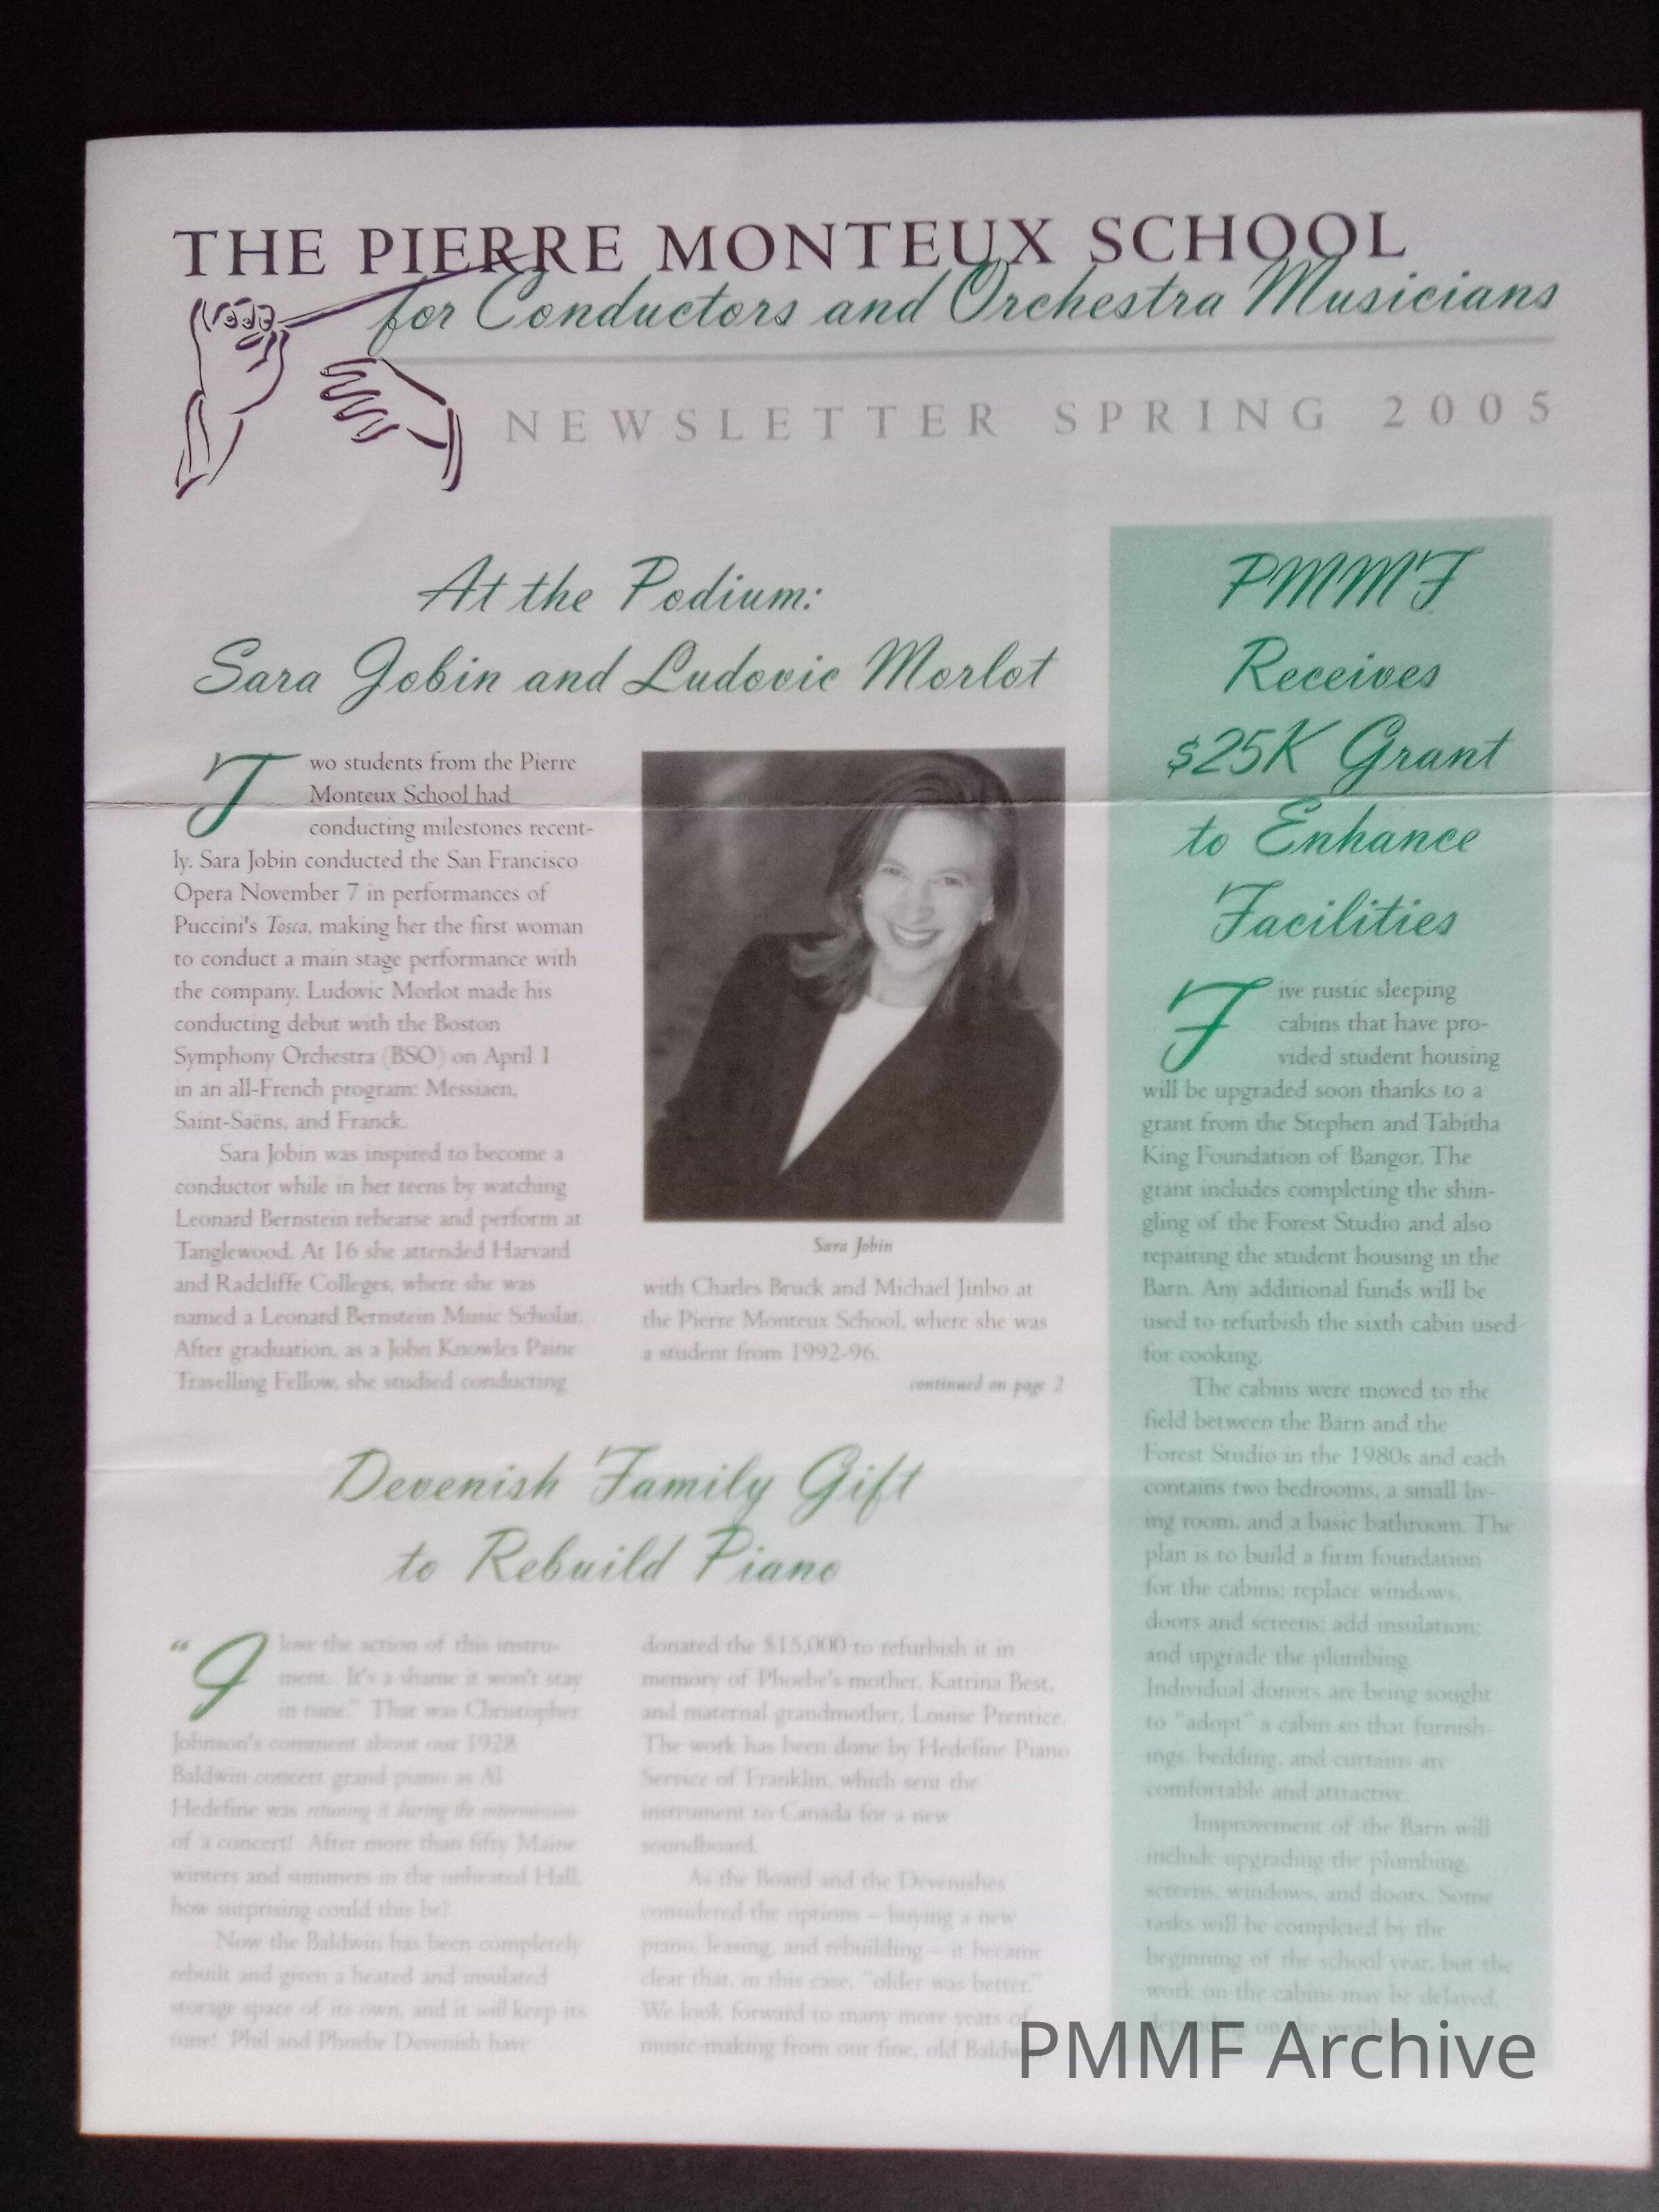 THE PIERRE MONTEUX SCHOOL
for Conductors and Orchestra Musicians
NEWSLETTER SPRING 2005
At the Podium:
Sara Jobin and Ludovic Morlot
Two students from the Pierre
Monteux School had
conducting milestones recent-
ly. Sara Jobin conducted the San Francisco
Opera November 7 in performances of
Puccini's Tosca, making her the first woman
to conduct a main stage performance with
the company. Ludovic Morlot made his
conducting debut with the Boston
Symphony Orchestra (BSO) on April 1
in an all-French program: Messiaen,
Saint-Saëns, and Franck.
Sara Jobin was inspired to become a
conductor while in her teens by watching
Leonard Bernstein rehearse and perform at
Tanglewood. At 16 she attended Harvard
and Radcliffe Colleges, where she was
named a Leonard Bernstein Music Scholar.
After graduation, as a John Knowles Paine
Travelling Fellow, she studied conducting
Sara Jobin
with Charles Bruck and Michael Jinbo at
the Pierre Monteux School, where she was
a student from 1992-96.
continued on page 2
Devenish Family Gift
to Rebuild Piano
"I love the action of this instru-
ment. It's a shame it won't stay
in tune." That was Christopher
Johnson's comment about our 1928
Baldwin concert grand piano as Al
Hedefine was retuning it during the intermission
of a concert! After more than fifty Maine
winters and summers in the unheated Hall,
how surprising could this be?
Now the Baldwin has been completely
rebuilt and given a heated and insulated
storage space of its own, and it will keep its
tune! Phil and Phoebe Devenish have
donated the $15,000 to refurbish it in
memory of Phoebe's mother, Katrina Best,
and maternal grandmother, Louise Prentice.
The work has been done by Hedefine Piano
Service of Franklin, which sent the
instrument to Canada for a new
soundboard.
As the Board and the Devenishes
considered the options – buying a new
piano, leasing, and rebuilding – it became
clear that, in this case, "older was better."
We look forward to many more years of
music-making from our fine, old Baldwin.
PMMF
Receives
$25K Grant
to Enhance
Facilities
Five rustic sleeping
cabins that have pro-
vided student housing
will be upgraded soon thanks to a
grant from the Stephen and Tabitha
King Foundation of Bangor. The
grant includes completing the shin-
gling of the Forest Studio and also
repairing the student housing in the
Barn. Any additional funds will be
used to refurbish the sixth cabin used
for cooking.
The cabins were moved to the
field between the Barn and the
Forest Studio in the 1980s and each
contains two bedrooms, a small liv-
ing room, and a basic bathroom. The
plan is to build a firm foundation
for the cabins; replace windows,
doors and screens; add insulation;
and upgrade the plumbing.
Individual donors are being sought
to "adopt" a cabin so that furnish-
ings, bedding, and curtains are
comfortable and attractive.
Improvement of the Barn will
include upgrading the plumbing,
screens, windows, and doors. Some
tasks will be completed by the
beginning of the school year, but the
work on the cabins may be delayed,
depending on the weather.
PMMF Archive